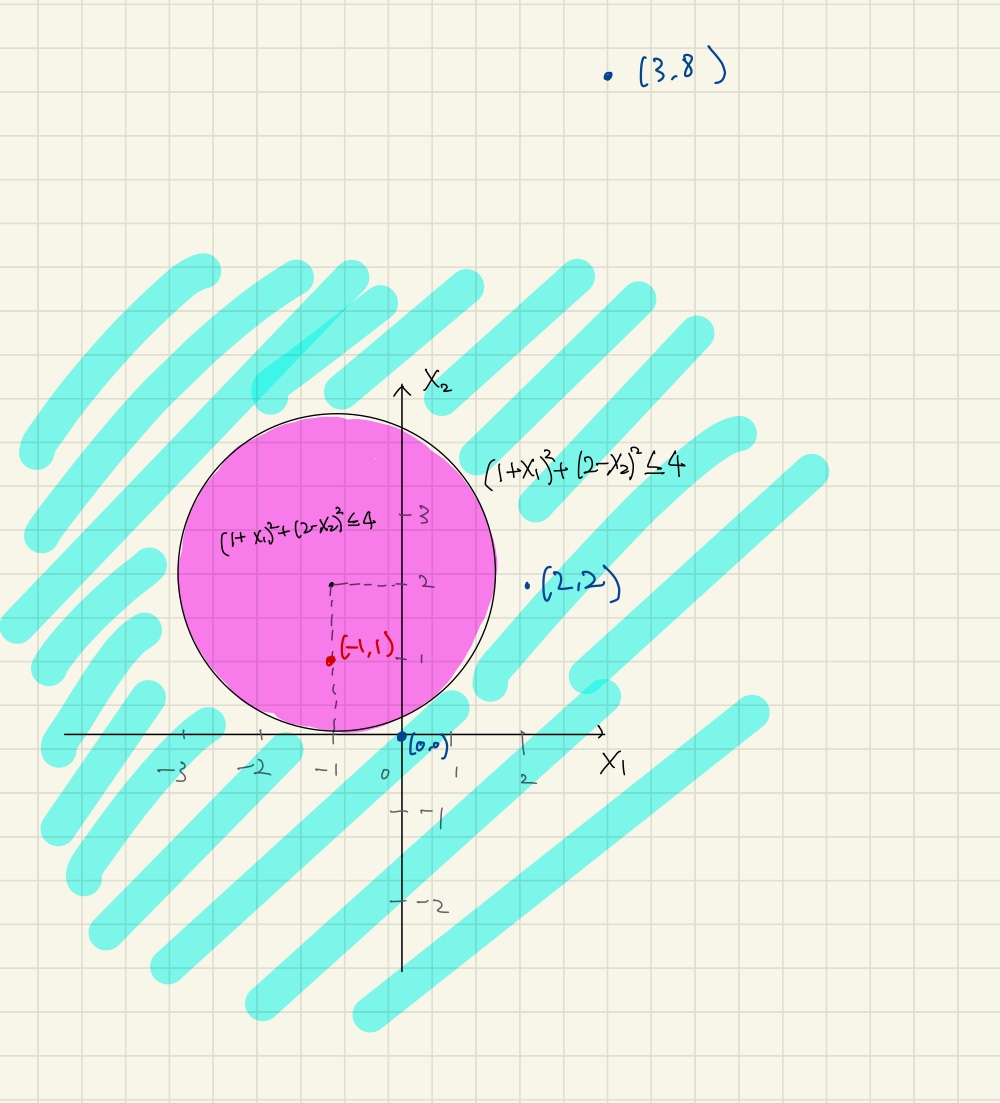 (3,8)
X₂
(1+X₁)²+(2-X₂)²≤4
3
(1+X₁)²+(2-X₂)²≤4
2
(2,2)
(-1,1)
1
(0,0)
X₁
-3 -2 -1 0 1 2
-1
-2